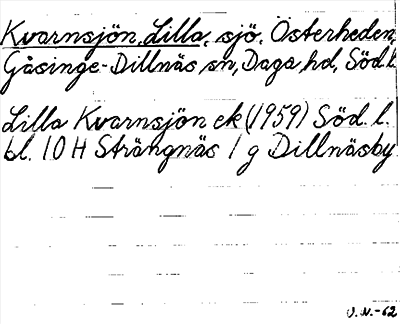 Kvarnsjön, Lilla, sjö, Österheden,
Gåsinge-Dillnäs sn, Daga hd, Söd.l.
Lilla Kvarnsjön ek (1959) Söd. l.
bl. 10 H Strängnäs 1 g Dillnäsby
O.N.-62